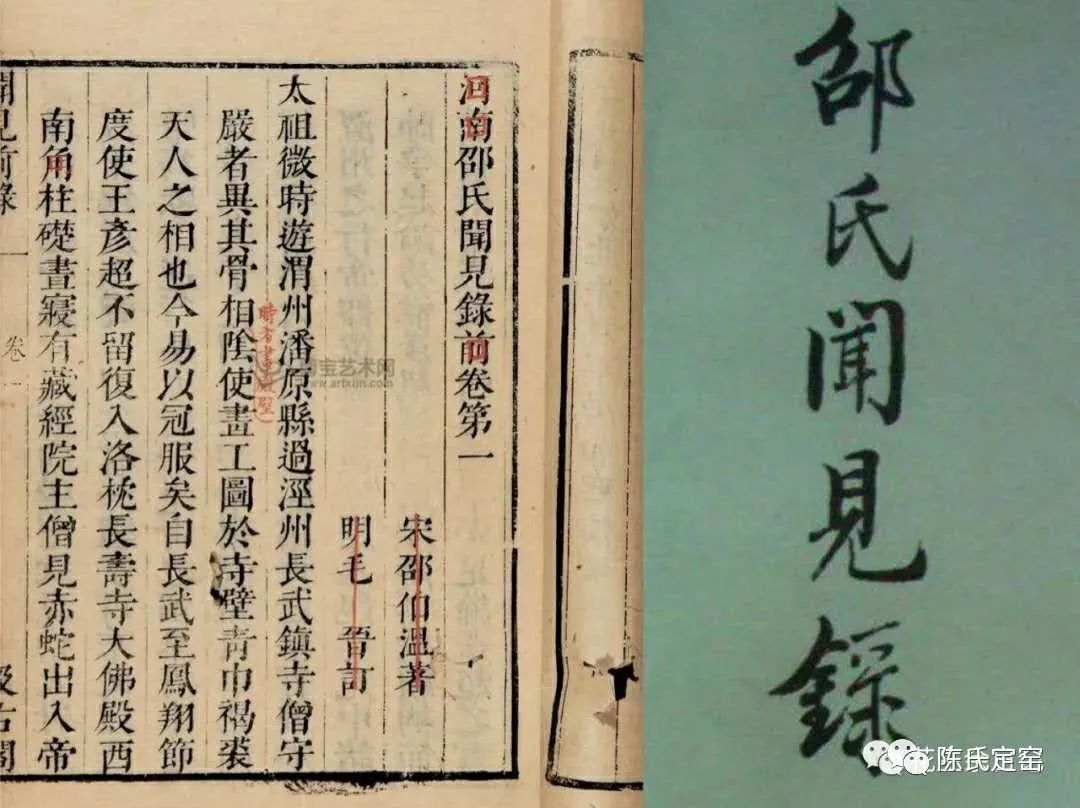 邵氏聞見錄
河南邵氏聞見錄前卷第一
宋邵伯溫著
明毛晉訂
太祖微時遊渭州潘原縣過涇州長武鎮寺僧守
嚴者異其骨相陰使畫工圖於寺壁青巾褐裘
天人之相也今易以冠服矣自長武至鳳翔節
度使王彥超不留復入洛枕長壽寺大佛殿西
南角柱礎晝寢有藏經院主僧見赤蛇出入帝
聞見前錄
卷一
汲古閣
www.artxun.com
花陈氏定窑